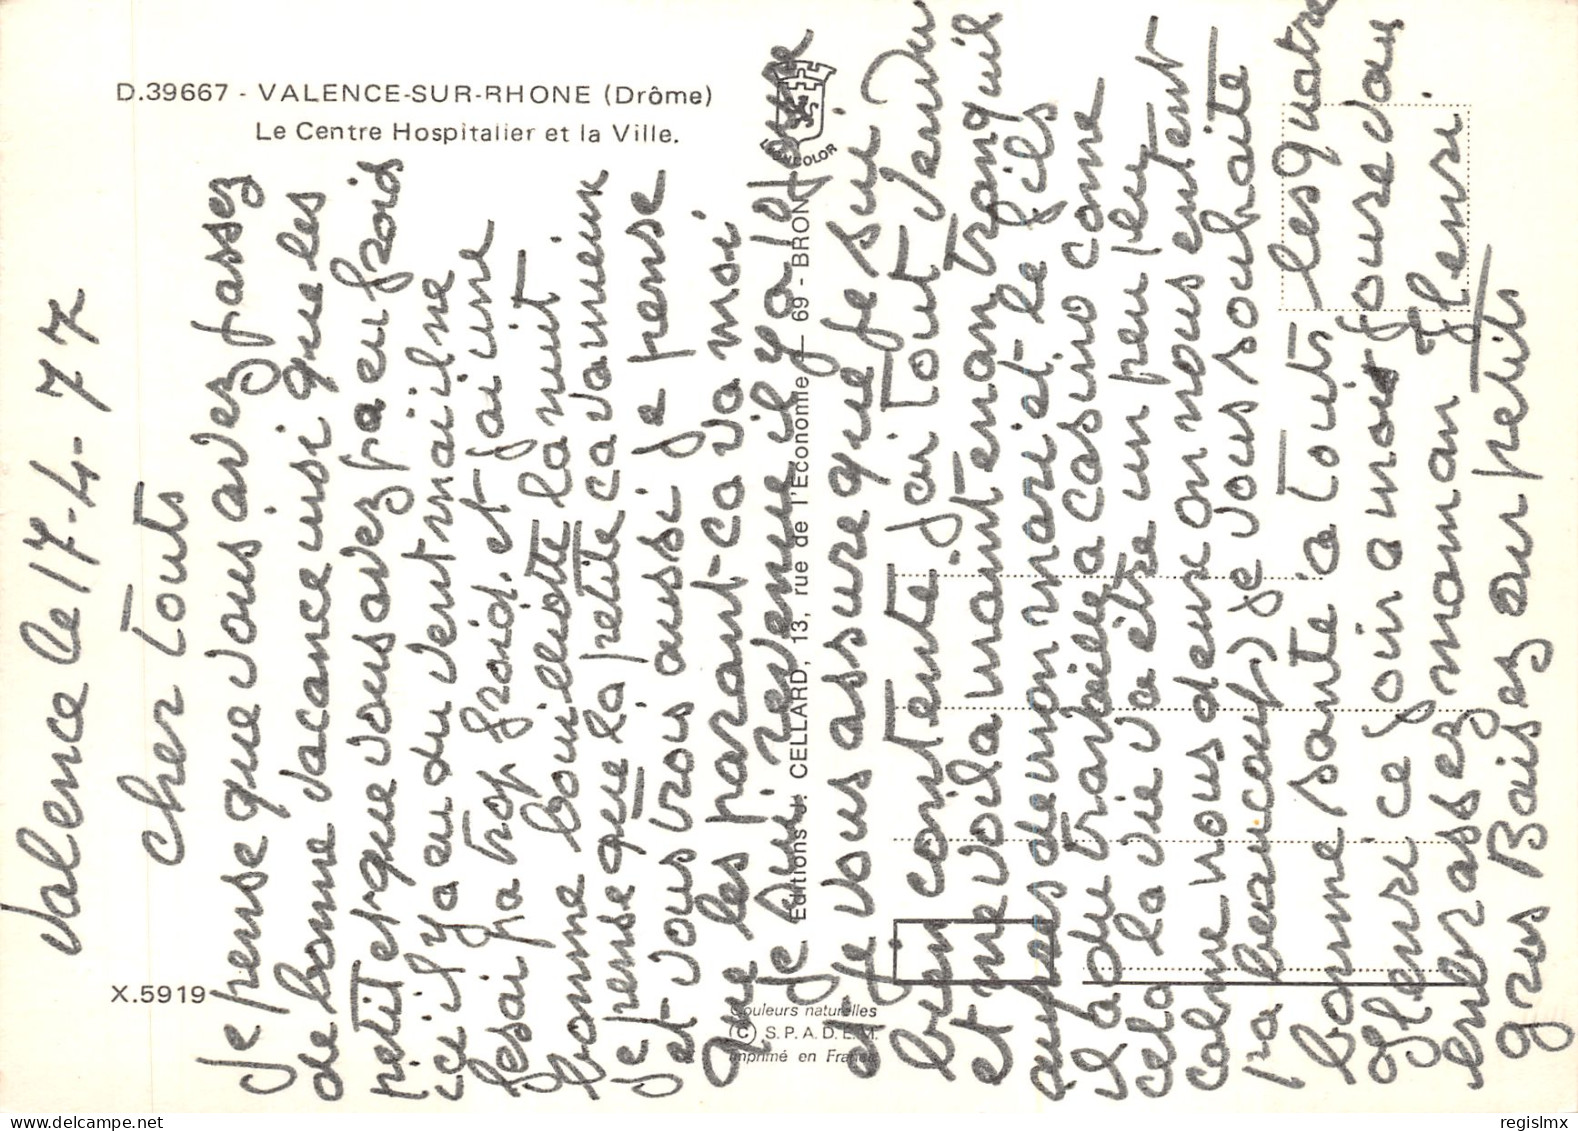 D.39667 - VALENCE-SUR-RHONE (Drôme)
Le Centre Hospitalier et la Ville.
X.5919
LYONCOLOR
Editions J. CELLARD, 13, rue de l'Economie — 69 - BRON
Couleurs naturelles
© S.P.A.D.E.M.
Imprimé en France
Valence Le 17-4-77
Cher Touts
Je pense que vous avez passez
de bonne vacance insi que les
petit et que vous avez pa eu frois
ici il y a eu du vent mai il ne
fesai pa trop froid. et j'ai une
bonne bouillotte la nuit.
Je pense que la petite ca va mieux
et vous trois aussi je pense
que les parant ca va moi
Je sui revenu il y a 10 jour
et je vous assure que je sui
bien contente. J'ai tout vendu
et me voila maintenan tranquil
aupres de mon mari et le fils
il a du travaille a casino come
cela la vie va être un peu plus
calme nous deux on nous entent
pa beaucoup. Je vous souhaite
bonne sante a touts les quatre
Henri ce soir a mois pour vous
embrassez maman Henri.
gros Baisez aux petits
regislmx